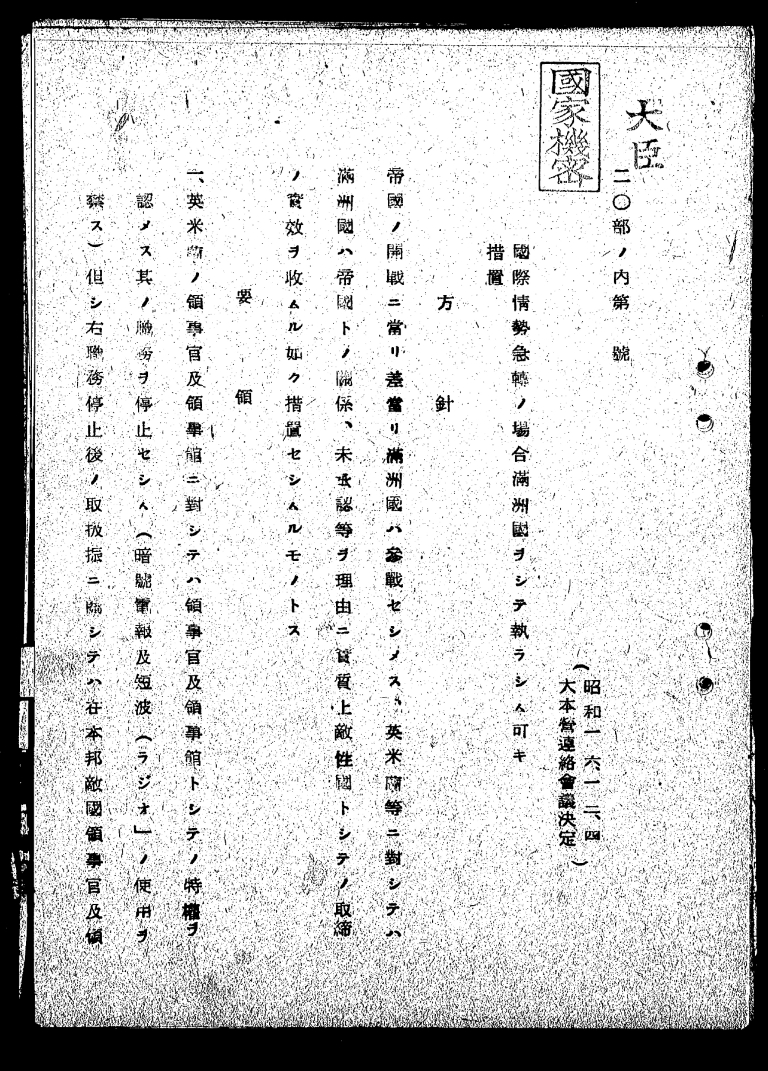 大臣
國家機密
二〇部ノ内第 號
(昭和一六、一二、四
大本營連絡會議決定)
國際情勢急轉ノ場合滿洲國ヲシテ執ラシム可キ
措置
方針
帝國ノ開戰ニ當リ差當リ滿洲國ハ參戰セシメス、英米蘭等ニ對シテハ
滿洲國ハ帝國トノ關係、未承認等ヲ理由ニ實質上敵性國トシテノ取締
ノ實效ヲ收ムル如ク措置セシムルモノトス
要領
一、英米蘭ノ領事官及領事館ニ對シテハ領事官及領事館トシテノ特權ヲ
認メス其ノ職務ヲ停止セシム(暗號電報及短波(ラジオ」ノ使用ヲ
禁ス)但シ右職務停止後ノ取扱振ニ關シテハ在本邦敵國領事官及領